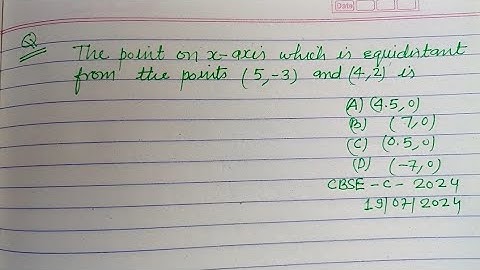 Date
Q
The point on x-axis which is equidistant
from the points (5,-3) and (4,2) is
(A) (4.5,0)
(B) (7,0)
(C) (0.5,0)
(D) (-7,0)
CBSE - C - 2024
19/07/2024